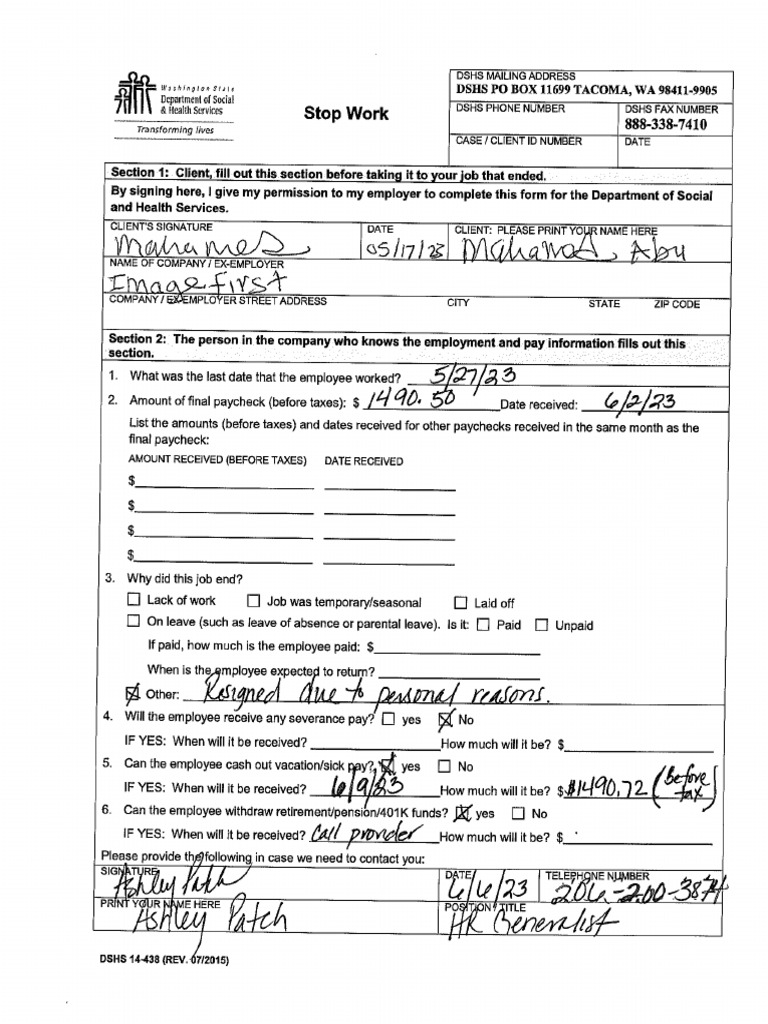 Washington State
Department of Social
& Health Services
Transforming lives
Stop Work
DSHS MAILING ADDRESS
DSHS PO BOX 11699 TACOMA, WA 98411-9905
DSHS PHONE NUMBER
DSHS FAX NUMBER
888-338-7410
CASE / CLIENT ID NUMBER
DATE
Section 1: Client, fill out this section before taking it to your job that ended.
By signing here, I give my permission to my employer to complete this form for the Department of Social
and Health Services.
CLIENT'S SIGNATURE DATE CLIENT: PLEASE PRINT YOUR NAME HERE
05/17/23 Mahamod, Abu
NAME OF COMPANY / EX-EMPLOYER
Image First
COMPANY / EX-EMPLOYER STREET ADDRESS CITY STATE ZIP CODE
Section 2: The person in the company who knows the employment and pay information fills out this
section.
1. What was the last date that the employee worked? 5/27/23
2. Amount of final paycheck (before taxes): $ 1490.50 Date received: 6/2/23
List the amounts (before taxes) and dates received for other paychecks received in the same month as the
final paycheck:
AMOUNT RECEIVED (BEFORE TAXES) DATE RECEIVED
$
$
$
$
3. Why did this job end?
Lack of work Job was temporary/seasonal Laid off
On leave (such as leave of absence or parental leave). Is it: Paid Unpaid
If paid, how much is the employee paid: $
When is the employee expected to return?
Other: Resigned due to personal reasons.
4. Will the employee receive any severance pay? yes No
IF YES: When will it be received? How much will it be? $
5. Can the employee cash out vacation/sick pay? yes No
IF YES: When will it be received? 6/9/23 How much will it be? $ $1490.72 (Before tax)
6. Can the employee withdraw retirement/pension/401K funds? yes No
IF YES: When will it be received? Call provider How much will it be? $
Please provide the following in case we need to contact you:
SIGNATURE DATE TELEPHONE NUMBER
Ashley Patch 6/6/23 206-200-3874
PRINT YOUR NAME HERE POSITION / TITLE
Ashley Patch HR Generalist
DSHS 14-438 (REV. 07/2015)